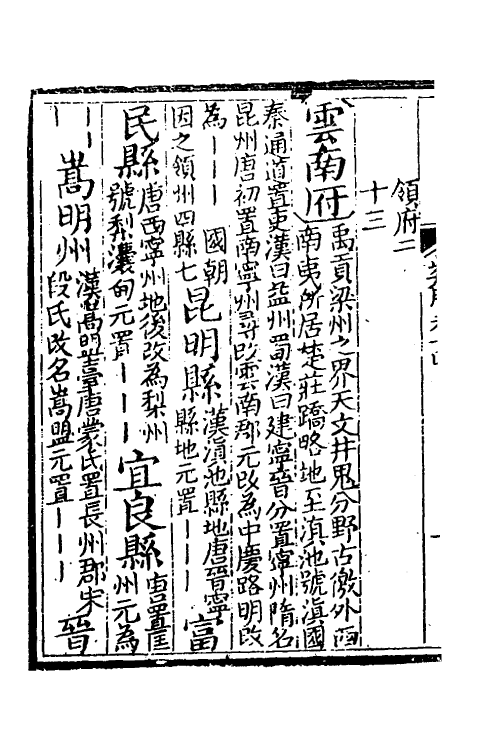 領府二
十三
雲南府
禹貢梁州之界天文井鬼分野古徼外西
南夷所居楚莊蹻略地至滇池號滇國
秦通道置吏漢曰益州蜀漢曰建寧晉分置寧州隋名
昆州唐初置南寧州尋改雲南郡元改為中慶路明改
為｜｜｜　國朝
因之領州四縣七
昆明縣
漢滇池縣地唐晉寧
縣地元置｜｜｜
富
民縣
唐西寧州地後改為梨州
號梨瀼甸元置｜｜｜
宜良縣
唐置匡
州元為
｜｜｜
嵩明州
漢嵩盟臺唐蒙氏置長州郡宋
段氏改名嵩盟元置｜｜｜
晉